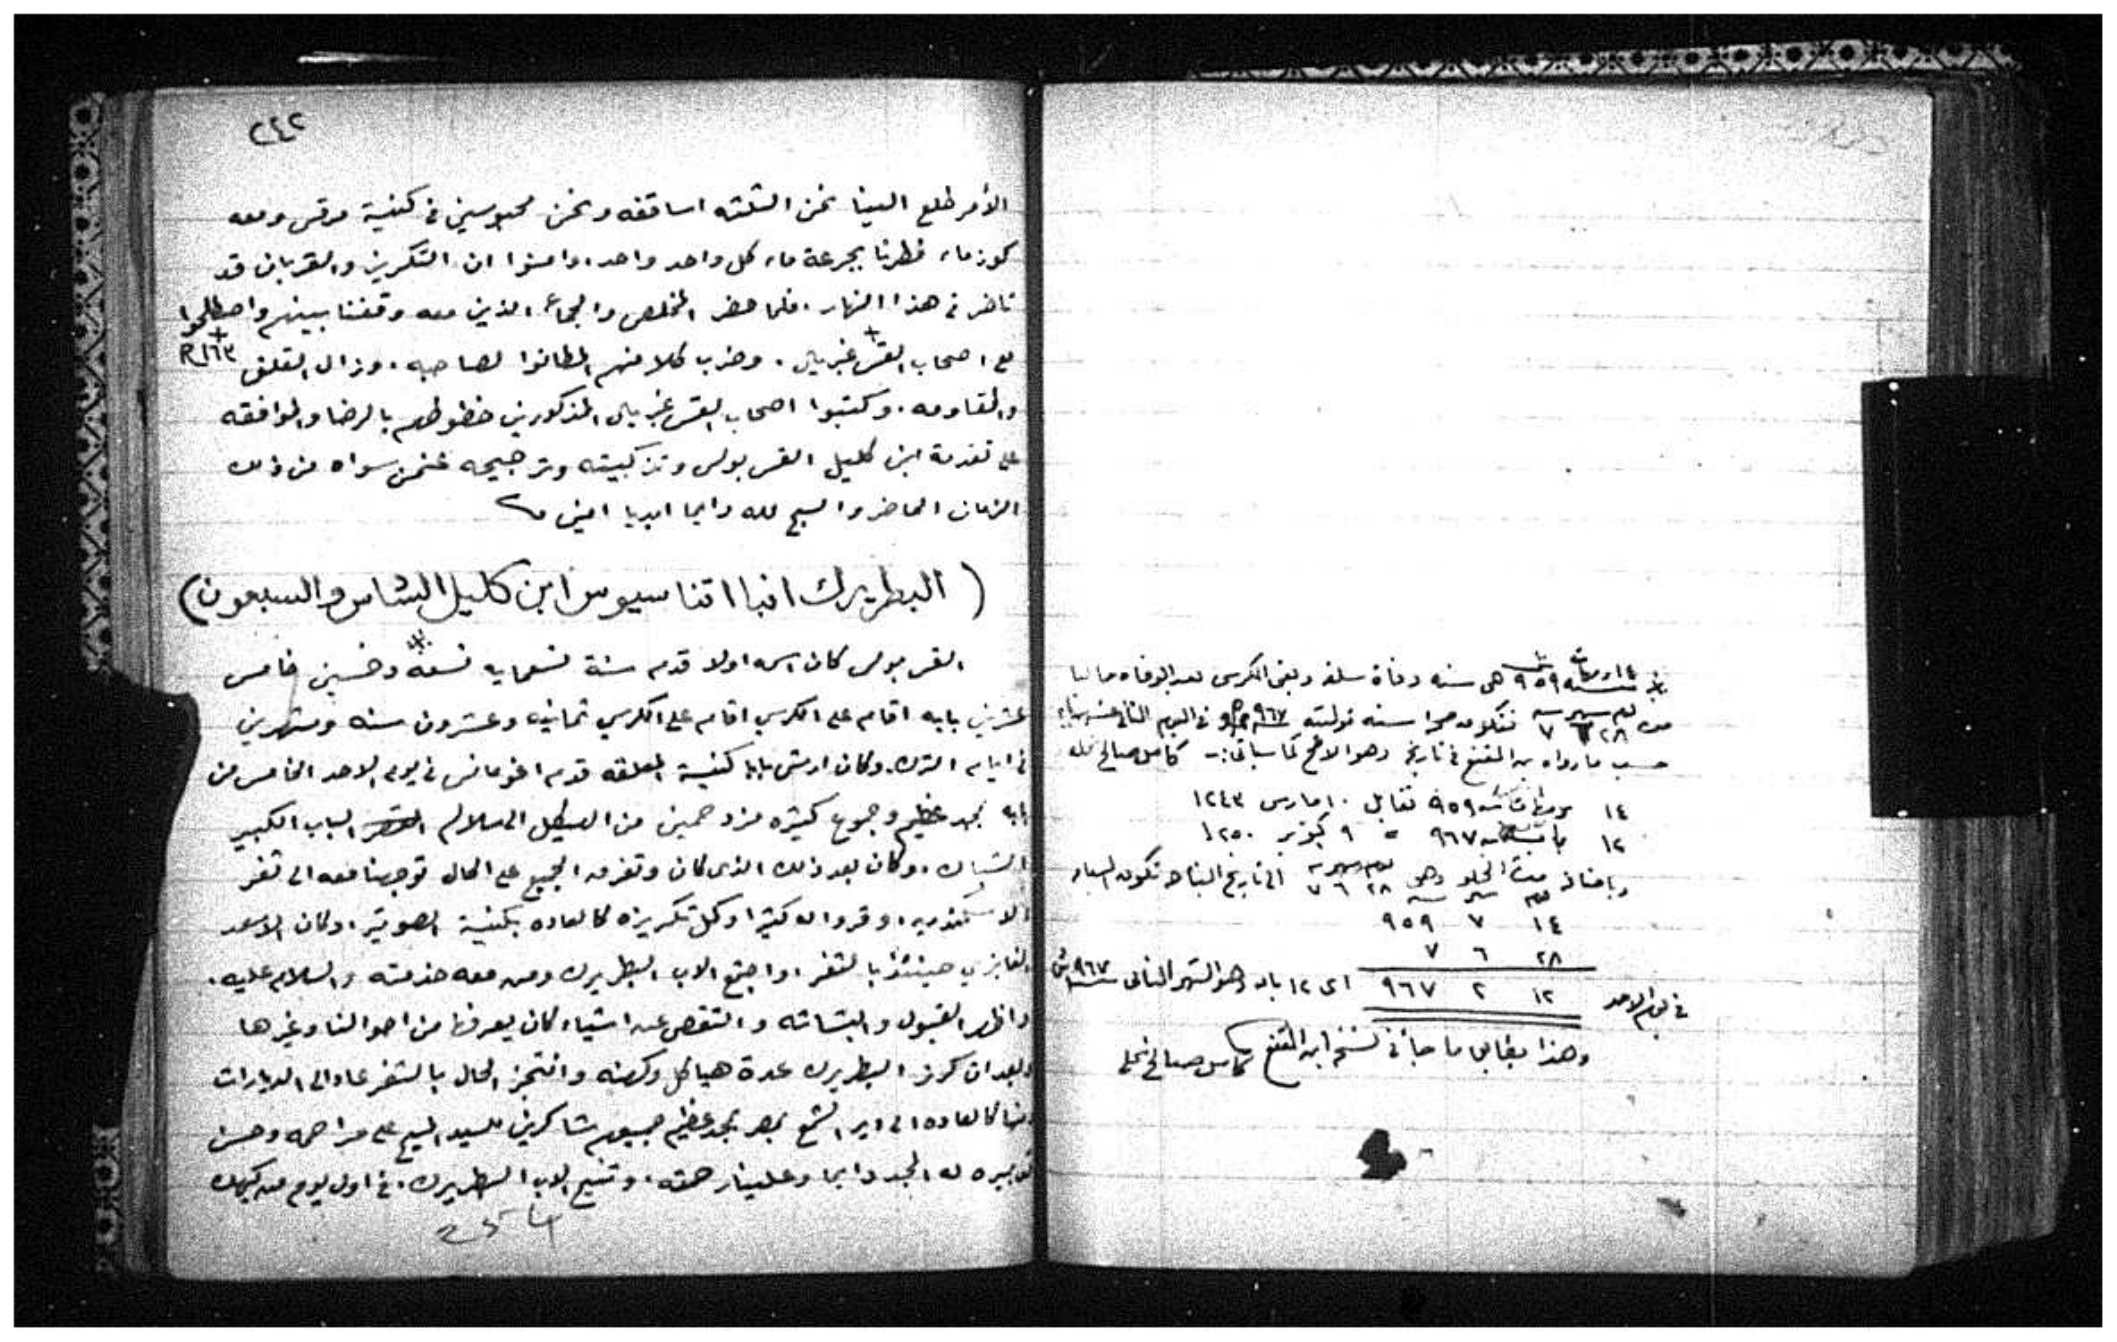 ٢٤٢
الأمر طلع الينا نحن الثلثه اساقفه ونحن محبوسين فى كنيسة مرقس ومعه
كوز ماء فطرنا بجرعة ماء كل واحد واحد وامنوا ان التكريز والقربان قد
تاخر فى هذا النهار. فلما حضر المخلص والجماعه الذين معه وقفنا بينهم واصطلحوا
مع اصحاب القس غبريال. وضرب كلا منهم المطانوا لصاحبه. وزال القلق
R ١٦٣
والمقاومه. وكتبوا اصحاب القس غبريال المذكورين خطوطهم بالرضا والموافقه
على تقدمة ابن كليل القس بولس وتزكيته وترجيحه عنمن سواه من ذلك
الزمان الحاضر والسبح لله دايما ابديا امين
(البطريرك انبا اتناسيوس ابن كليل السادس والسبعون)
القس بولس كان اسمه اولا قدم سنة تسعمايه تسعة وخمسين خامس
عشرين بابه اقام على الكرسي اقام على الكرسي ثمانيه وعشرون سنه وشهرين
فى ايام الترك. وكان ارشى بابا كنيسة المعلقه قدم اغومانس فى يوم الاحد الخامس من
بابه بمجد عظيم وجموع كثيره مزدحمين من الهيكل الى سلالم الباب الكبير
وكان بعد ذلك الذى كان وتفرق الجميع على الحال توجهنا معه الى ثغر
الاسكندريه وقروا له كثيرا وكل تكريزه كالعاده بكنيسة الصوتير وكان الاسعد
الفايزي حينئذ بالثغر واجتمع الاب البطريرك ومن معه خدمته والسلام عليه.
واظهر القبول والبشاشه والتفحص عن اشياء كان يعرفها من احوالنا وغيرها
وبعد ان كرز البطريرك عدة هياكل وكهنه وانتجز الحال بالثغر عاد الى الديارات
كالعاده الى دير الشمع بمصر بمجد عظيم جميعهم شاكرين للسيد المسيح على مراحمه وحسن
تدبيره له المجد دايما وعلينا رحمته. وتنيح الاب البطريرك فى اول يوم من كيهك
سنة ٩٥٩ هى سنه وفاة سلفه وبقى الكرسى بعد الوفاه خاليا
مدة ٢٨ ٦ ٧ فتكون صحة سنه توليته ٩٦٧ فى اليوم الثانى عشر
حسب ما رواه بن المقفع فى تاريخه وهو الاصح كما سياتى:- كامل صالح نخله
١٤ برمهات سنه ٩٥٩ تقابل ١٠ مارس ١٢٤٣
١٢ بابه سنه ٩٦٧ = ٩ اكتوبر ١٢٥٠
وباضافة مدة الخلو وهى ٢٨ ٦ ٧ الى تاريخ النياحه تكون السيامه
١٤ ٧ ٩٥٩
٢٨ ٦ ٧
فى يوم الاحد ١٢ ٢ ٩٦٧ اى ١٢ بابه وهو الشهر الثانى سنة ٩٦٧ ش
وهذا يطابق ما جاء فى نسخة ابن المقفع كامل صالح نخله